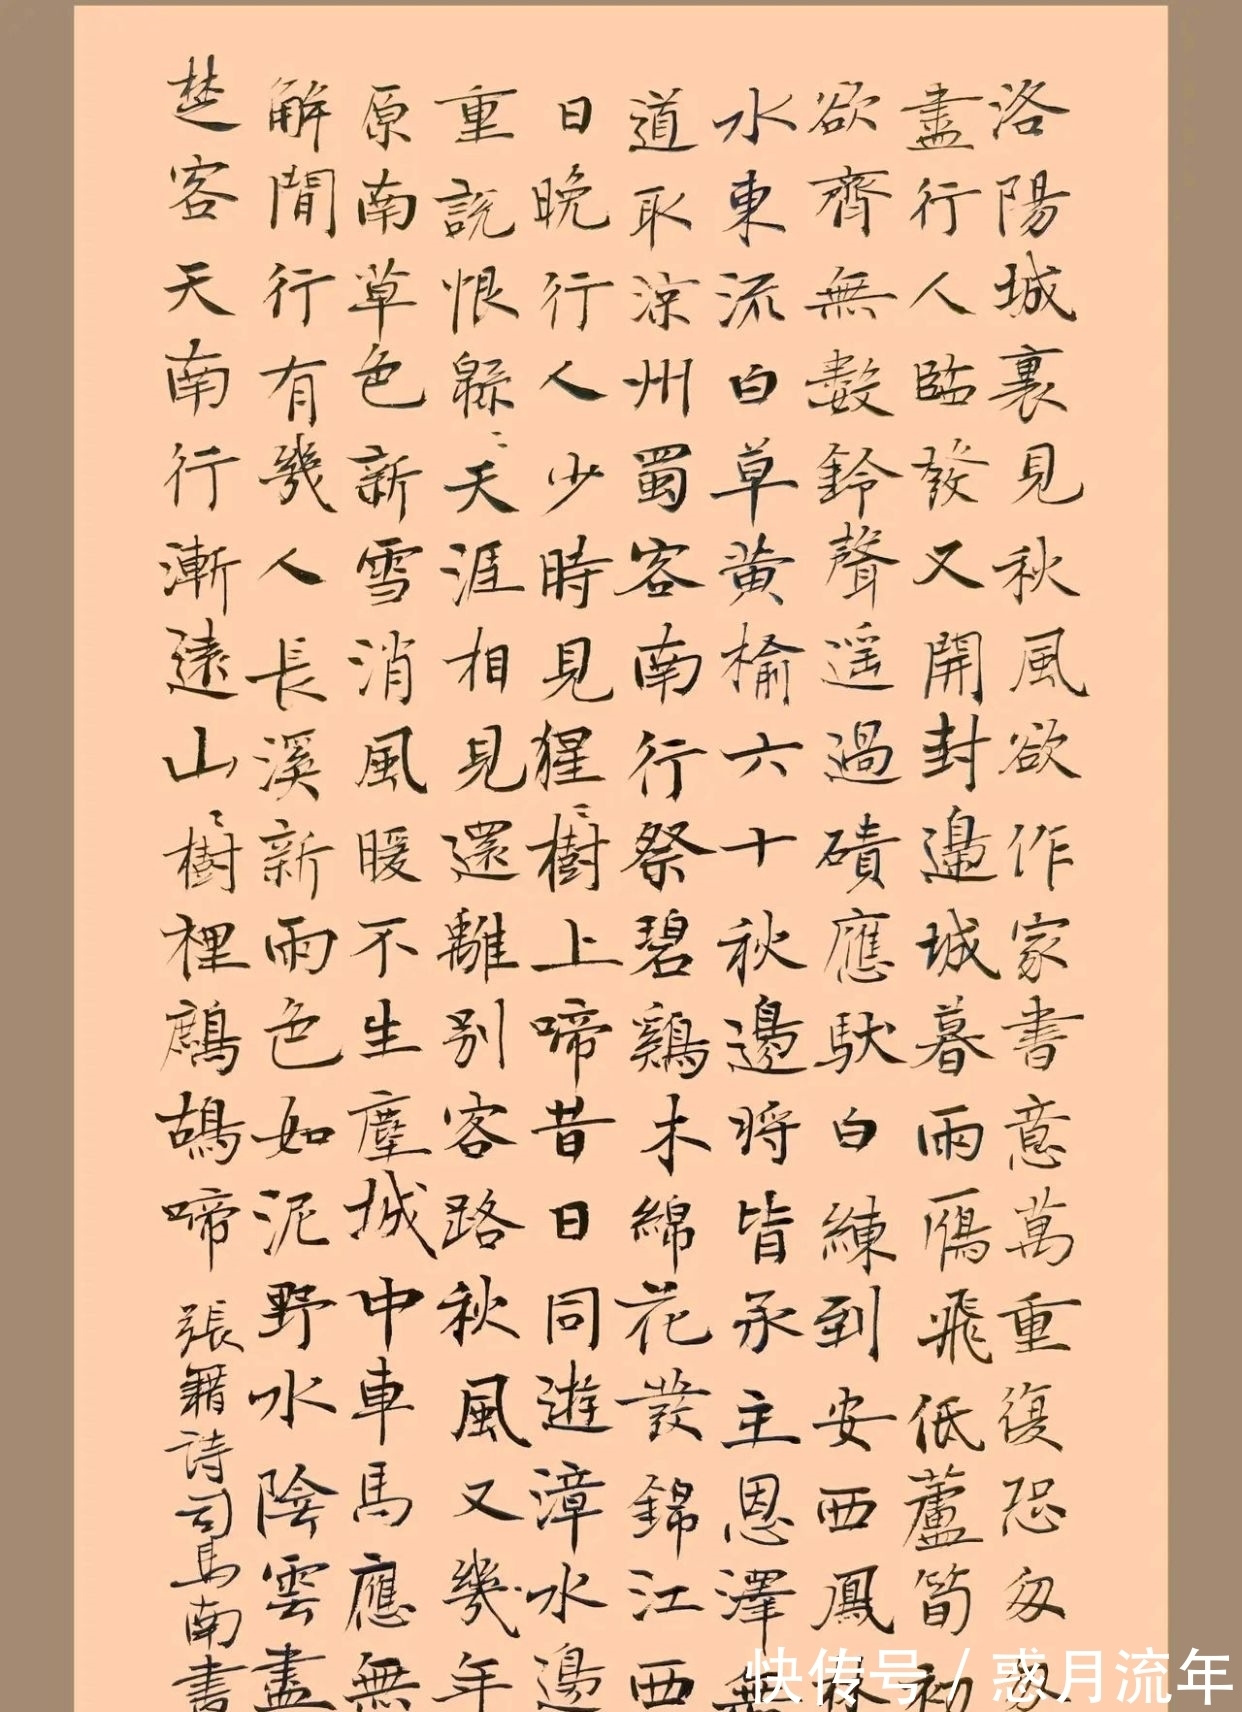 洛陽城裏見秋風欲作家書意萬重復恐匆匆
盡行人臨發又開封邊城暮雨鴈飛低蘆筍初
欲齊無數鈴聲遥過磧應馱白練到安西鳳林
水東流白草黄榆六十秋邊將皆承主恩澤無
道取涼州蜀客南行祭碧鷄木綿花發錦江西
日晚行人少時見猩〻樹上啼昔日同遊漳水邊
重説恨緜〻天涯相見還離别客路秋風又幾年
原南草色新雪消風暖不生塵城中車馬應無
解閒行有幾人長溪新雨色如泥野水陰雲盡
楚客天南行漸遠山〻樹裡鷓鴣啼 張籍詩司馬南書
快传号/惑月流年